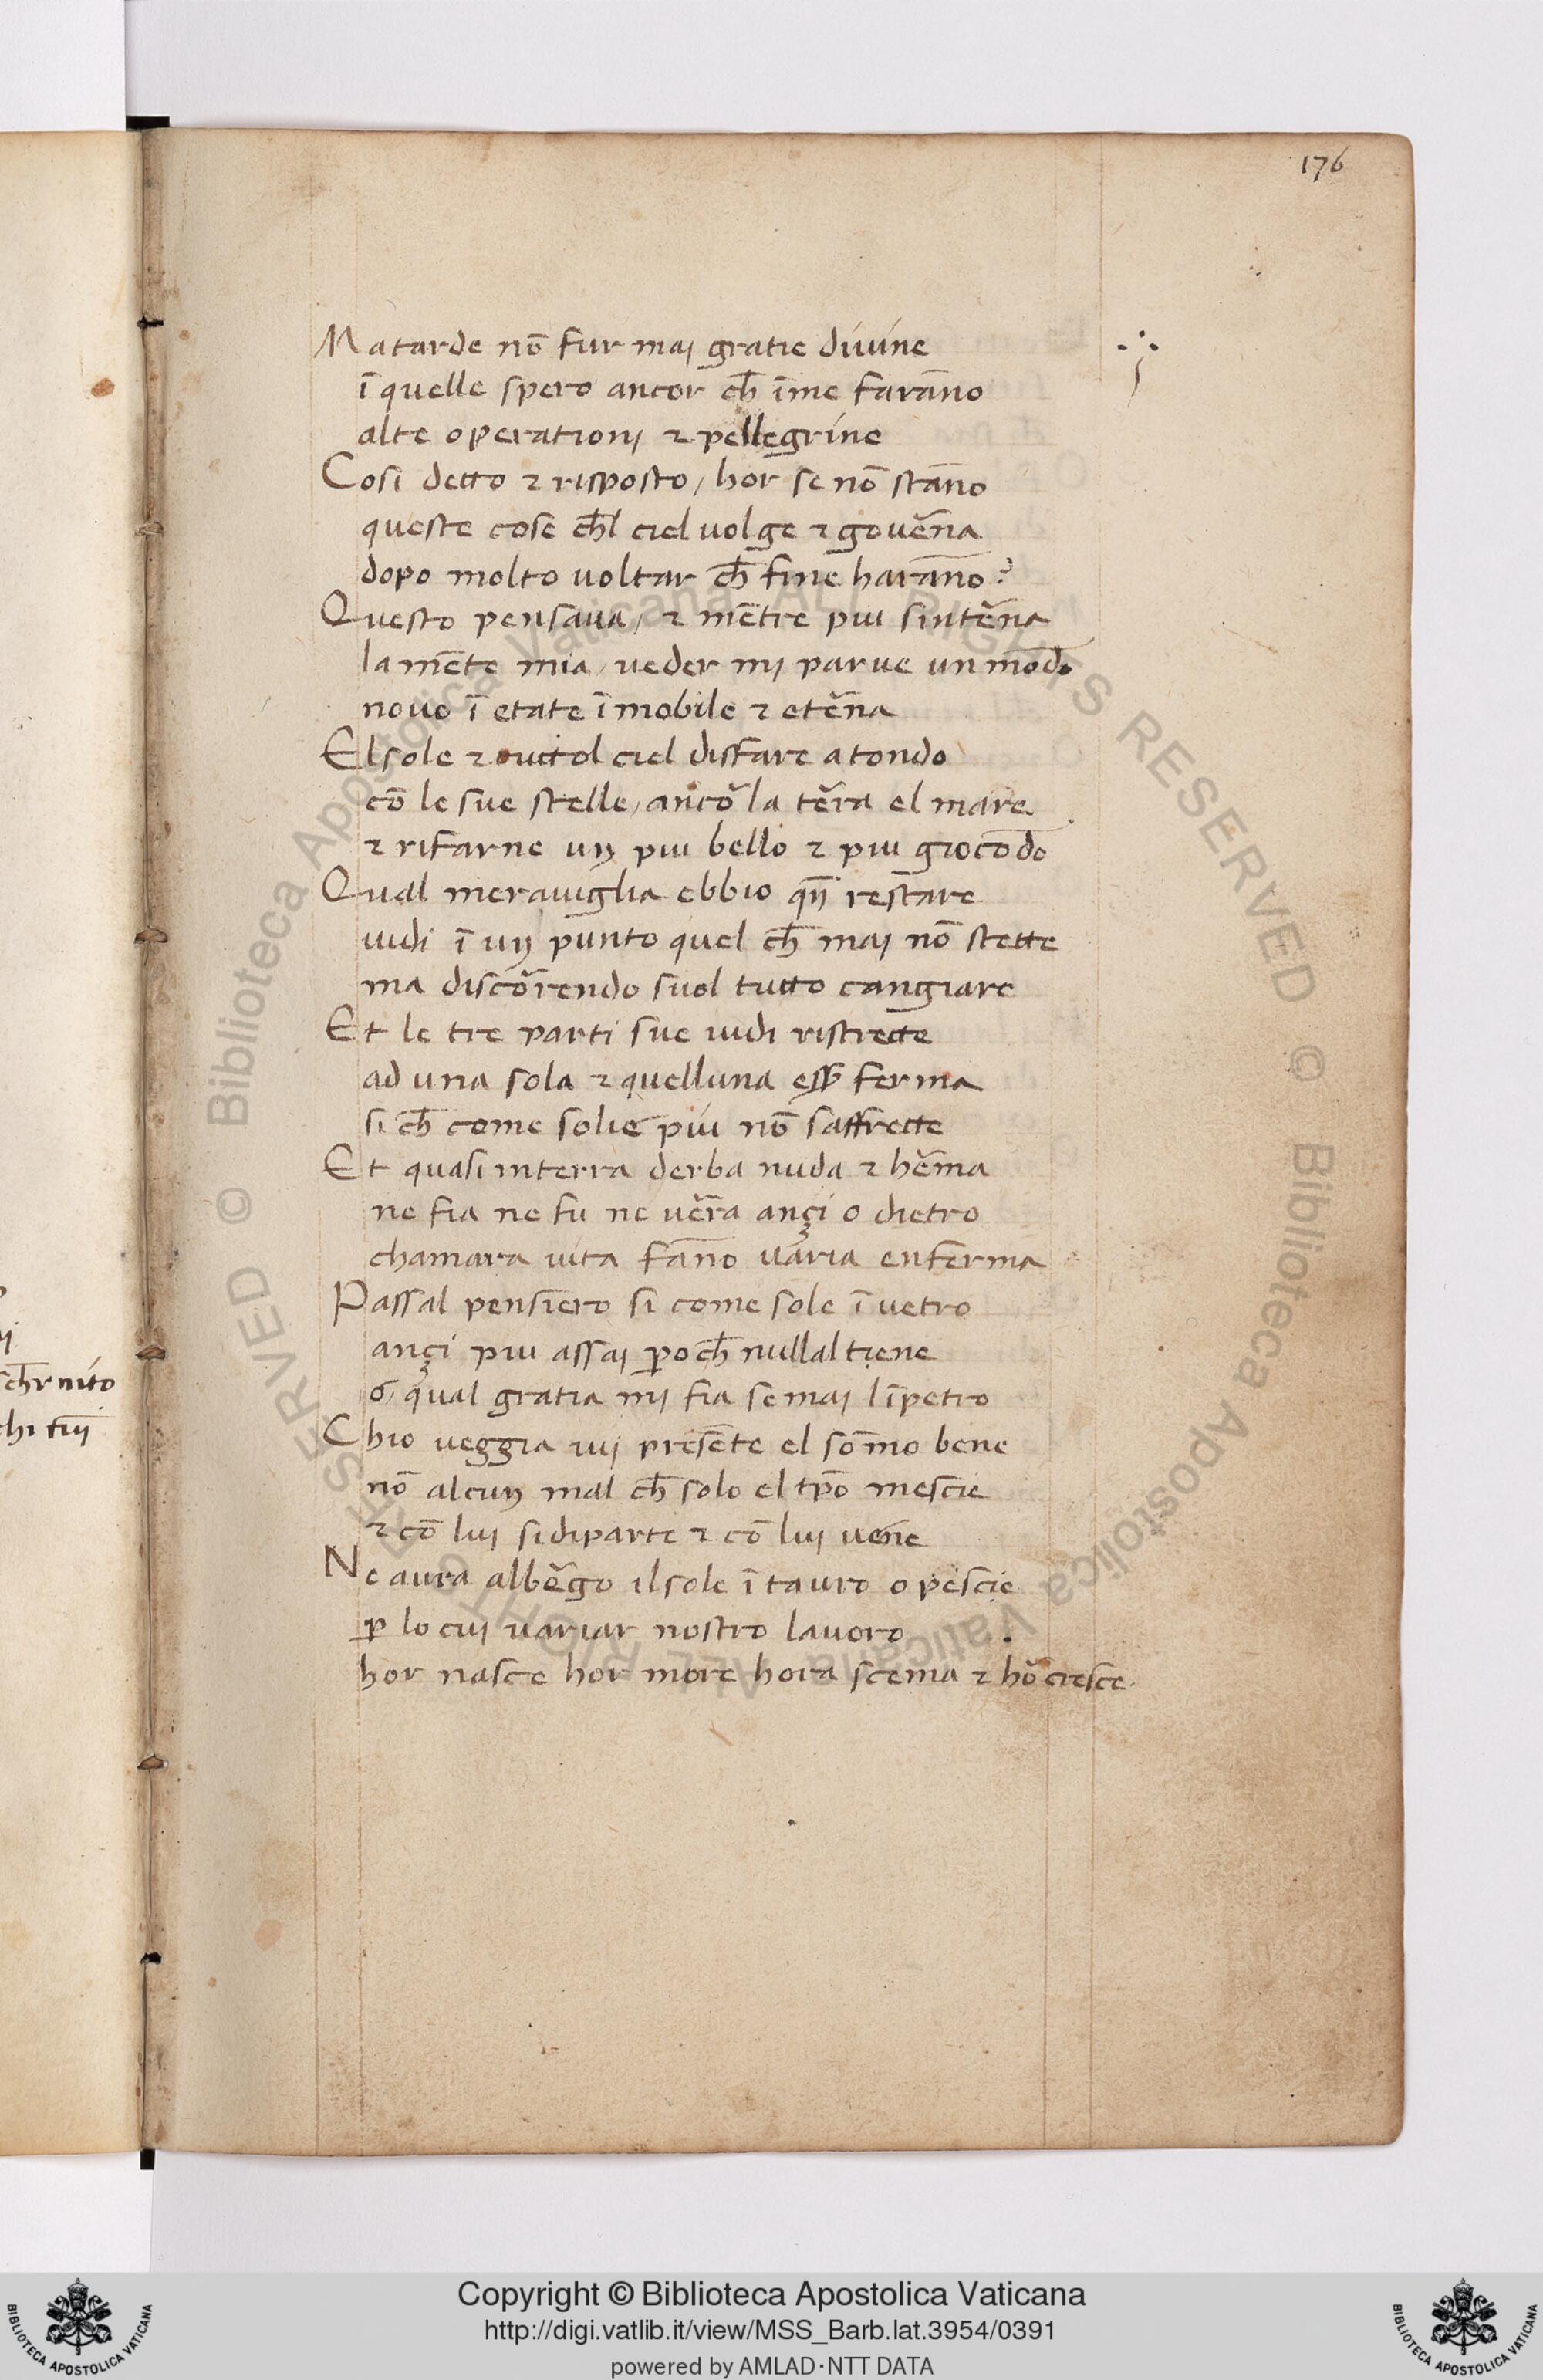 176
Ma tarde nō fur maj gratie diuine
ī quelle spero ancor ch̄ īme farāno
alte operationj ⁊ pellegrine
Cosi detto ⁊ risposto / hor se nō stāno
queste cose ch̄l ciel uolge ⁊ gouēna
dopo molto uoltar ch̄ fine harāno?
Questo pensaua / ⁊ mētre piu sintēna
la mēte mia / ueder mj parue un mōdo
nouo ī etate īmobile ⁊ etēna
El sole ⁊ tuttol ciel disfare a tondo
cō le sue stelle / ancō la tēra el mare
⁊ rifarne un piu bello ⁊ piu giocōdo
Qual merauiglia ebbio qn̄ restare
uidi ī un punto quel ch̄ maj nō stette
ma discōrendo suol tutto cangiare
Et le tre parti sue uidi ristrette
ad una sola ⁊ quelluna eſſ̄ ferma
si ch̄ come solie piu nō saffrette
Et quasi in terra derba nuda ⁊ hēma
ne fia ne fu ne uēra ançi o dietro
chamara uita fāno uaria enferma
Passal pensiero si come sole ī uetro
ançi piu assaj ꝑoch̄ nullal tiene
o / qual gratia mj fia se maj līpetro
Chio ueggia iuj presēte el sōmo bene
nō alcun mal ch̄ solo el tp̄o mescie
⁊ cō luj si diparte ⁊ cō luj uene
Ne aura albēgo il sole ī tauro o pescie
ꝑ lo cuj uariar nostro lauoro
hor nasce hor more hora scema ⁊ hō cresce
chr̄nito
Biblioteca Apostolica Vaticana ALL RIGHTS RESERVED © Biblioteca Apostolica Vaticana ALL RIGHTS RESERVED ©
Copyright © Biblioteca Apostolica Vaticana
http://digi.vatlib.it/view/MSS_Barb.lat.3954/0391
powered by AMLAD·NTT DATA
BIBLIOTECA APOSTOLICA VATICANA
BIBLIOTECA APOSTOLICA VATICANA